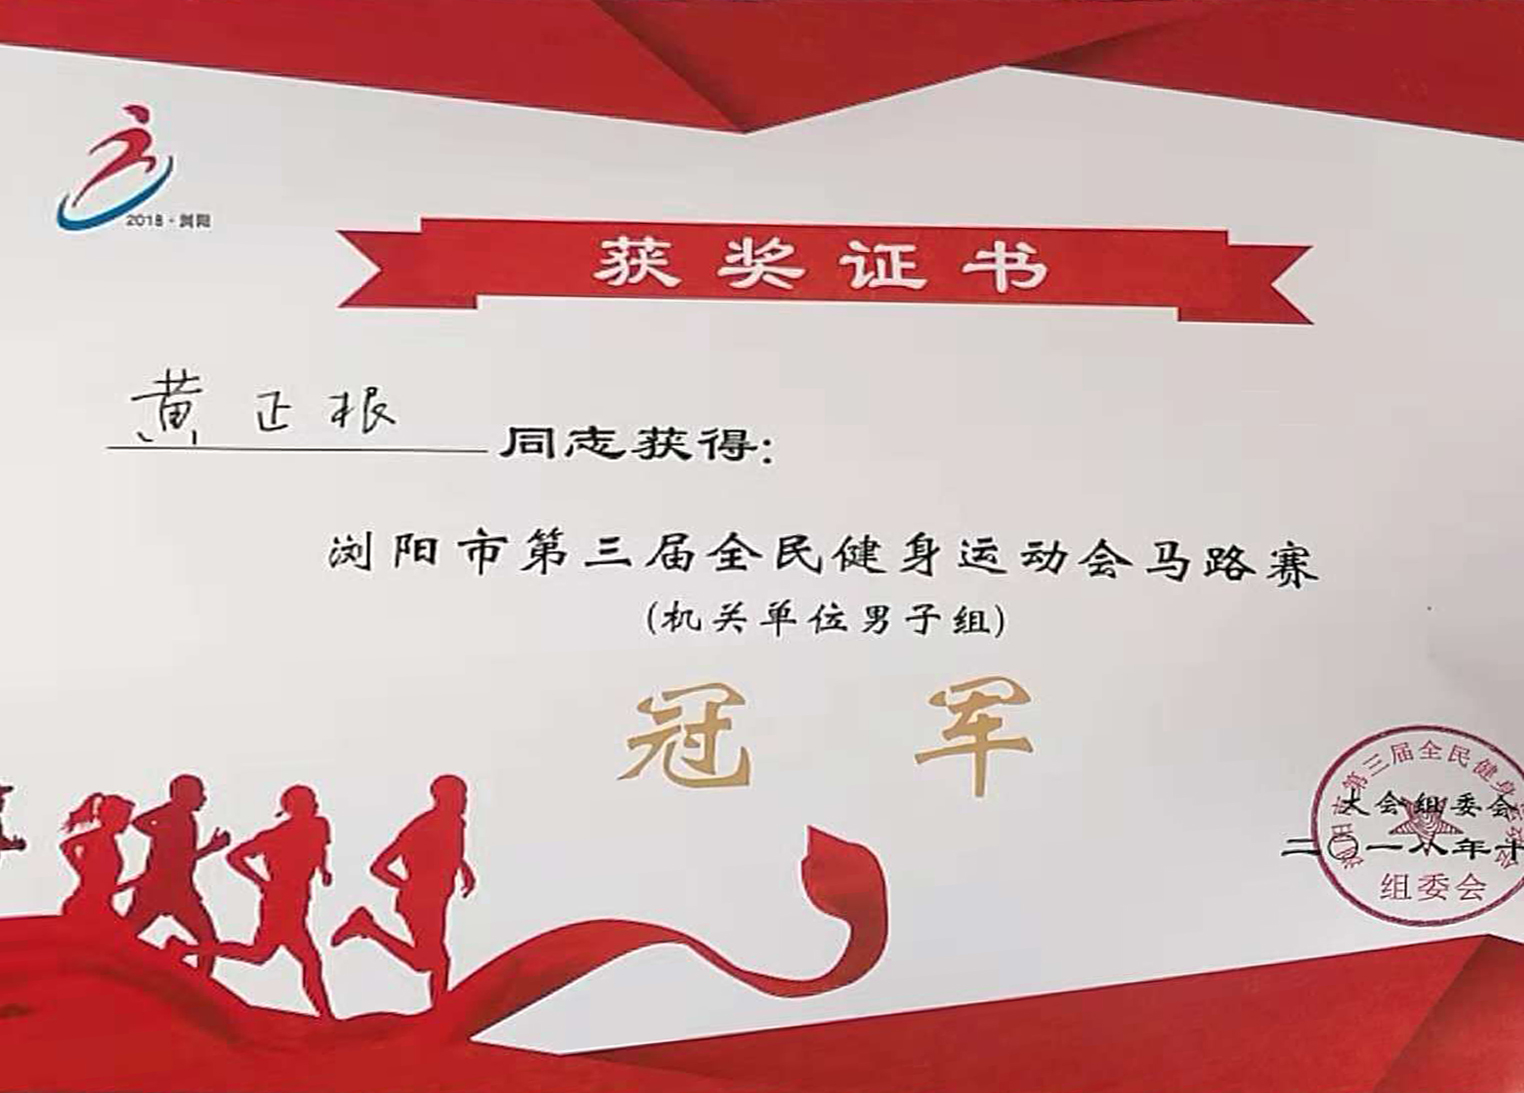 2018·浏阳
获奖证书
黄正根 同志获得:
浏阳市第三届全民健身运动会马路赛
(机关单位男子组)
冠军
大会组委会
二〇一八年十
浏阳市第三届全民健身运动会
组委会